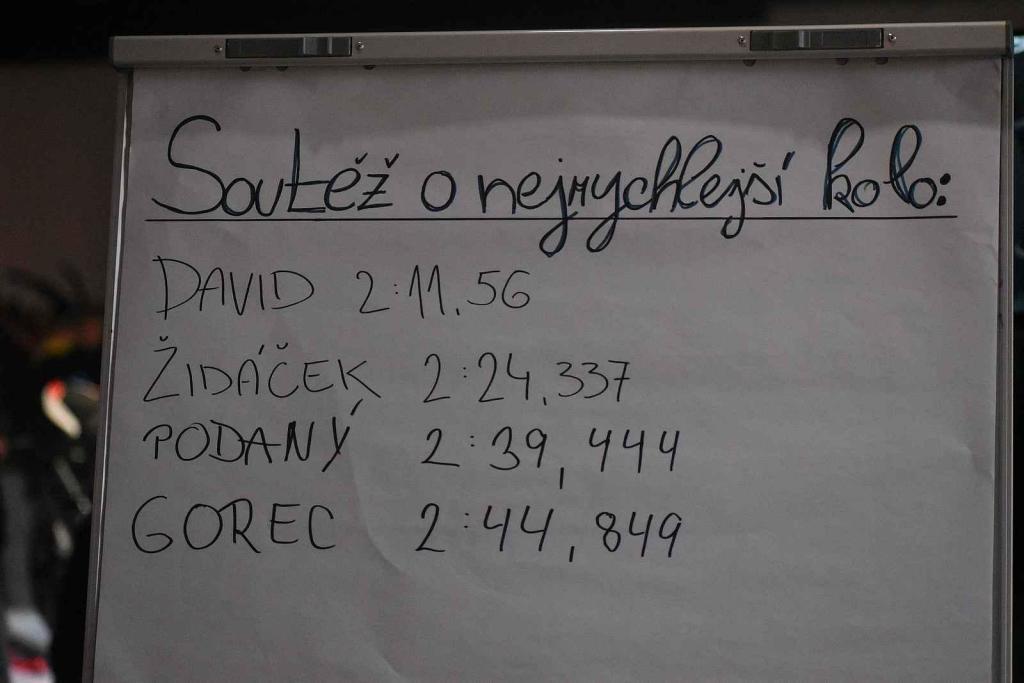 Soutěž o nejrychlejší kolo:
DAVID 2:11.56
ŽIDÁČEK 2:24.337
PODANÝ 2:39,444
GOREC 2:44,849